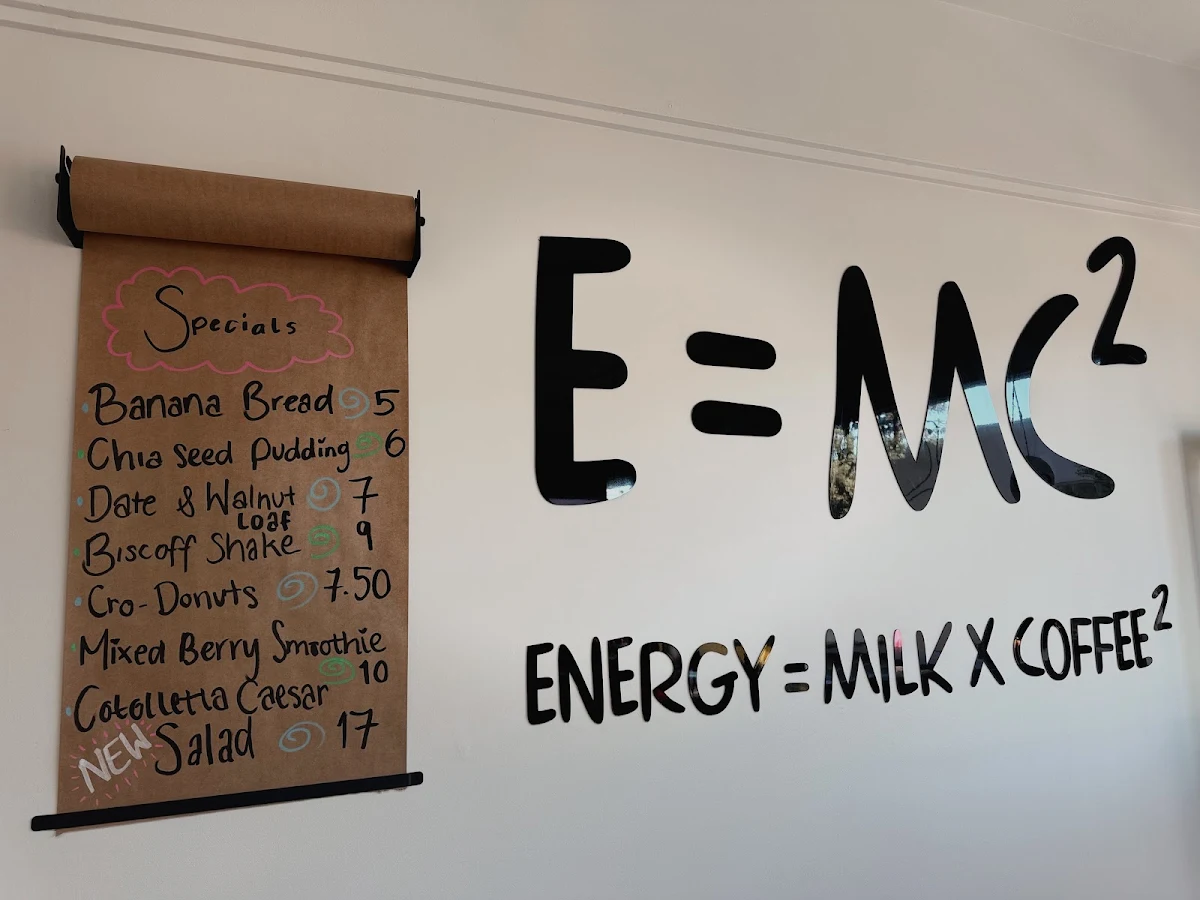 Specials
Banana Bread 5
Chia seed Pudding 6
Date & Walnut 7
Loaf
Biscoff Shake 9
Cro-Donuts 7.50
Mixed Berry Smoothie
10
Cotolletta Caesar
NEW Salad 17
E=MC²
ENERGY = MILK X COFFEE²